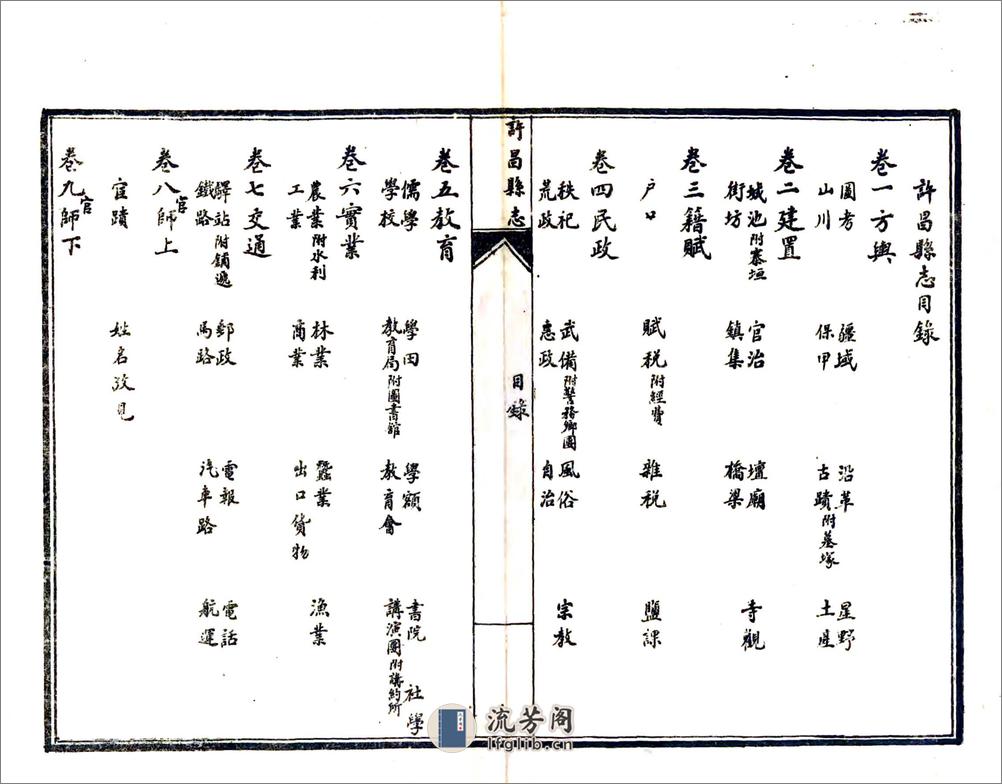 許昌縣志目錄
卷一方輿
圖考 疆域 沿革 星野
山川 保甲 古蹟附墓塚 土產
卷二建置
城池附寨垣 官治 壇廟 寺觀
街坊 鎮集 橋梁
卷三籍賦
户口 賦稅附經費 雜稅 鹽課
卷四民政
秩祀 武備附警務鄉團 風俗 宗教
荒政 惠政 自治
許昌縣志 目錄
卷五教育
儒學 學田 學額 書院 社學
學校 教育局附圖書館 教育會 講演團附講約所
卷六實業
農業附水利 林業 蠶業 漁業
工業 商業 出口貨物
卷七交通
驛站附鋪遞 郵政 電報 電話
鐵路 馬路 汽車路 航運
卷八官師上
宦蹟 姓名政見
卷九官師下
流芳阁
lfglib.cn